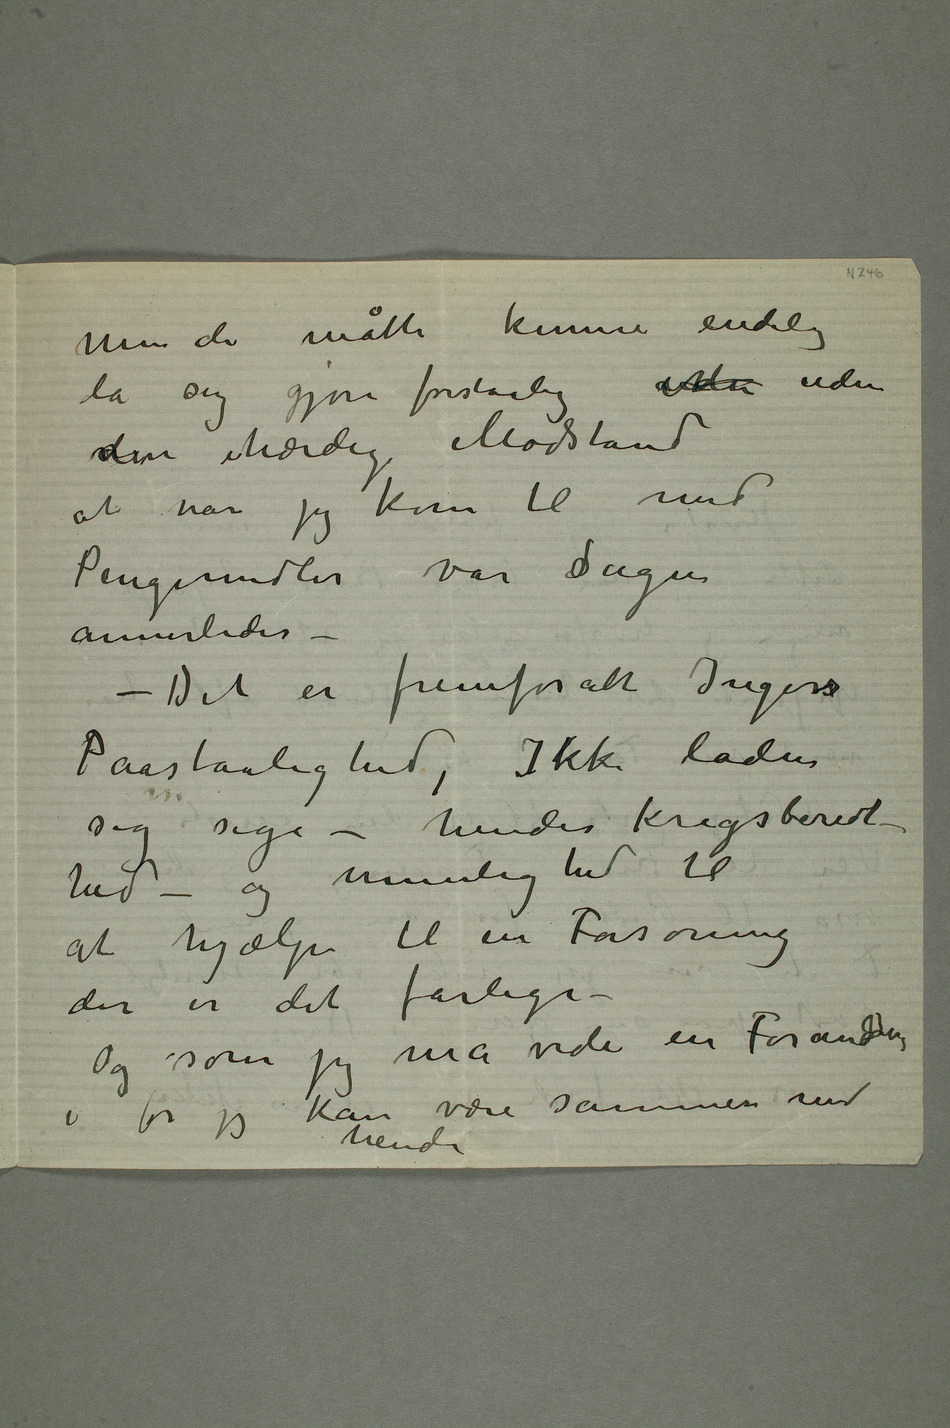 N 246
Men de måtte kunne endelig
la sig gjøre forstaaelig uden
den ihærdige Modstand
at når jeg kom til med
Pengemidler var Sagen
annerledes –
– Det er fremforalt Ingers
Paastaalighed, Ikke laden
sig sige – hendes Krigsberedt–
hed – og umulighed til
at hjælpe til en Forsoning
der er det farlige –
Og som jeg må vide en Forandring
i før jeg kan være sammen med
hende